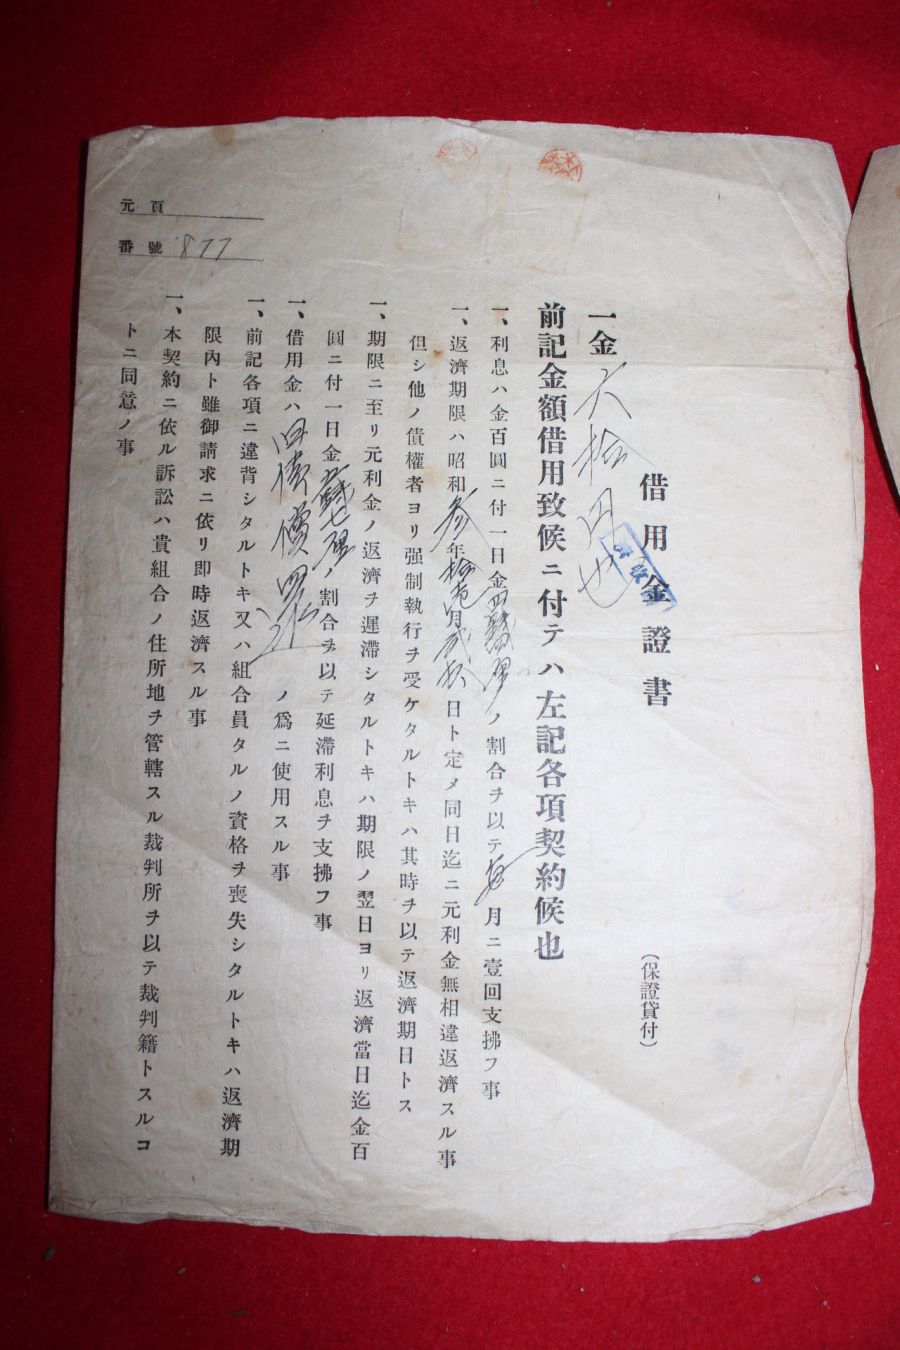 借用金證書
(保證貸付)
一金六拾円也
前記金額借用致候ニ付テハ左記各項契約候也
一、利息ハ金百圓ニ付一日金四錢ノ割合ヲ以テ毎月ニ壹回支拂フ事
一、返濟期限ハ昭和参年拾壱月弐拾日ト定メ同日迄ニ元利金無相違返濟スル事
但シ他ノ債權者ヨリ强制執行ヲ受ケタルトキハ其時ヲ以テ返濟期日トス
一、期限ニ至リ元利金ノ返濟ヲ遲滯シタルトキハ期限ノ翌日ヨリ返濟當日迄金百
圓ニ付一日金五錢七厘ノ割合ヲ以テ延滯利息ヲ支拂フ事
一、借用金ハ旧債償還ノ爲ニ使用スル事
一、前記各項ニ違背シタルトキ又ハ組合員タルノ資格ヲ喪失シタルトキハ返濟期
限內ト雖御請求ニ依リ卽時返濟スル事
一、本契約ニ依ル訴訟ハ貴組合ノ住所地ヲ管轄スル裁判所ヲ以テ裁判籍トスルコ
トニ同意ノ事
元頁
番號 877